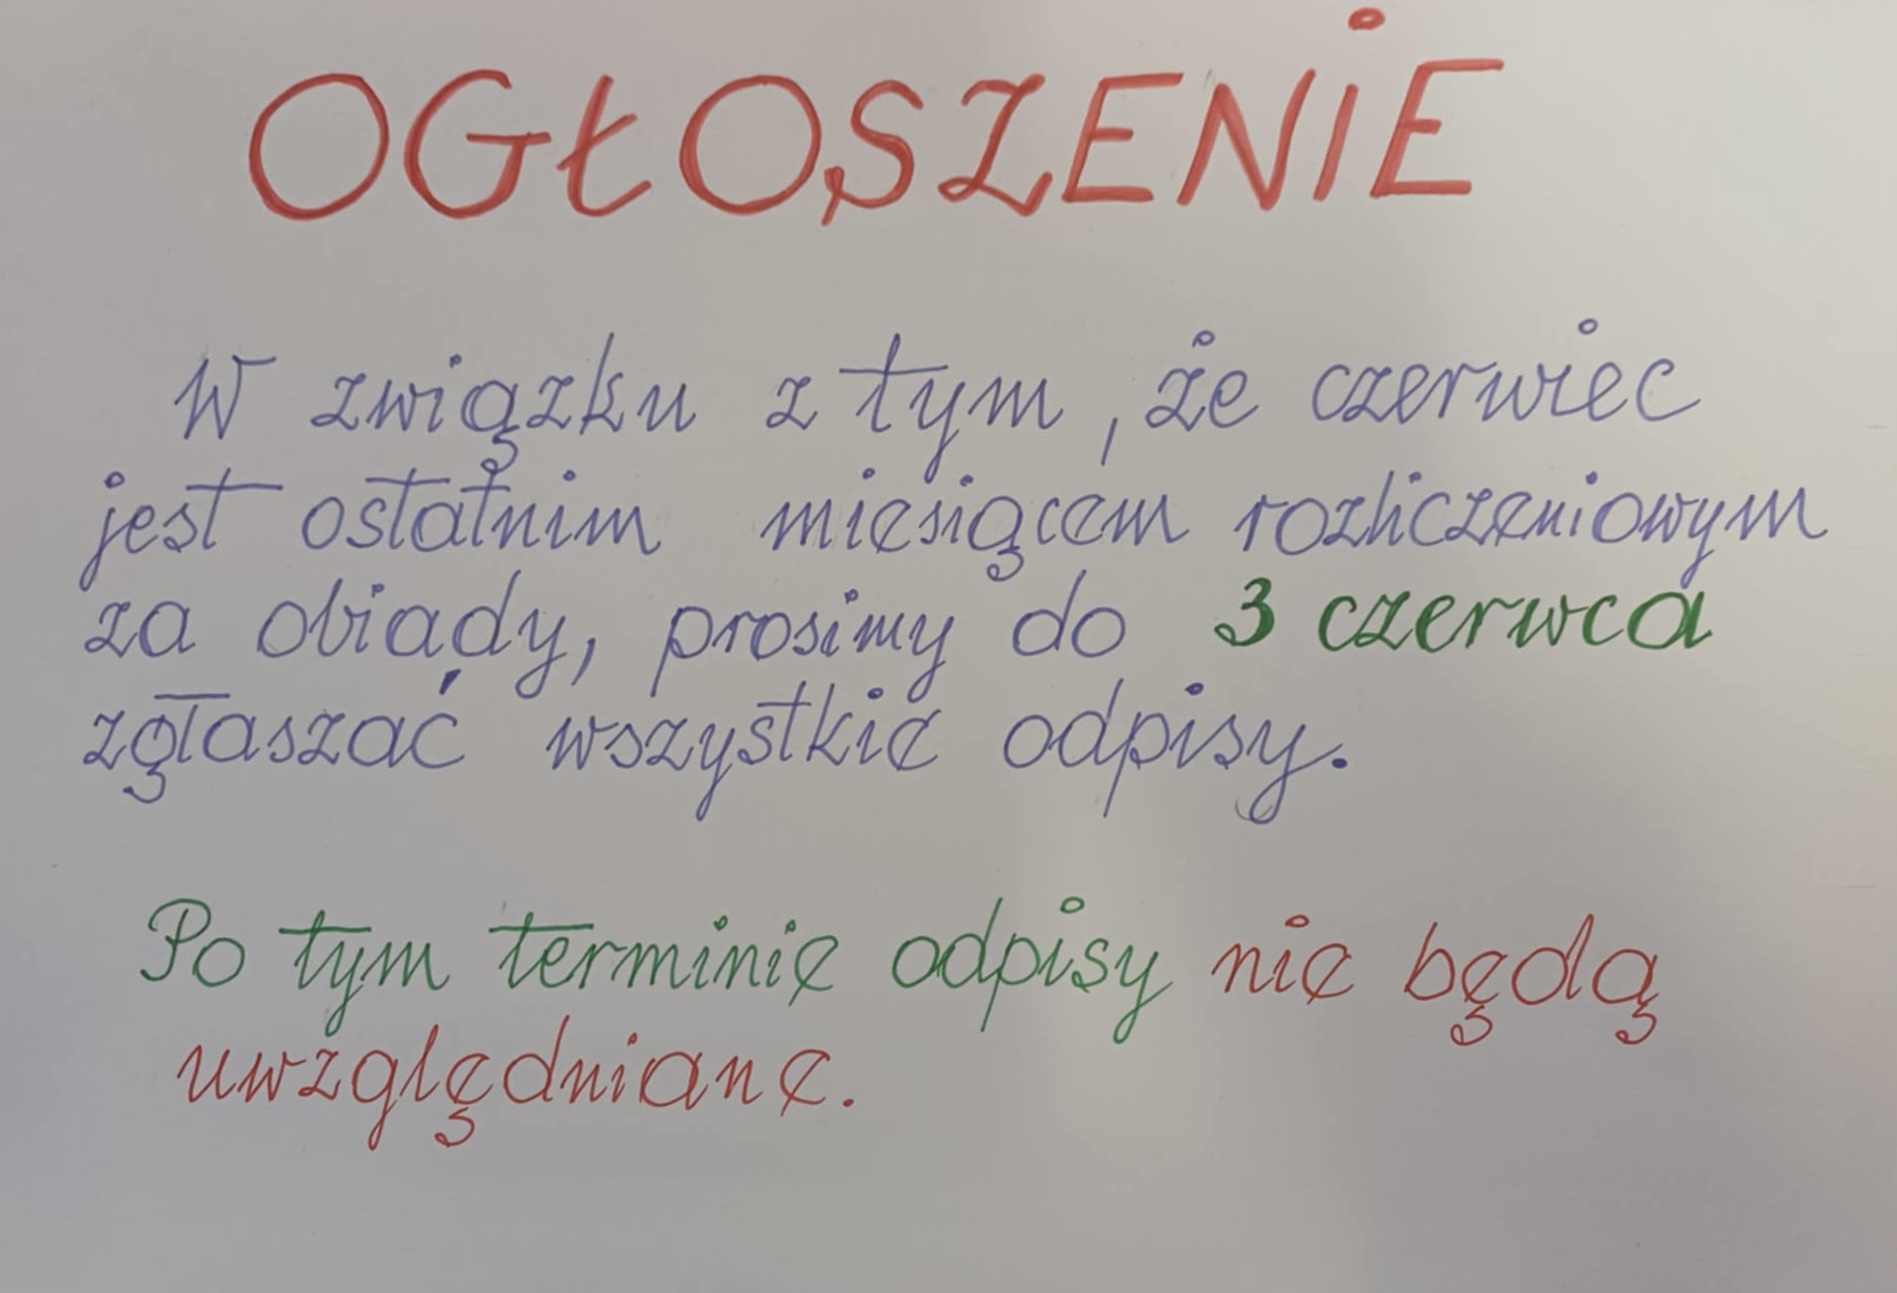 OGŁOSZENIE
W związku z tym, że czerwiec
jest ostatnim miesiącem rozliczeniowym
za obiady, prosimy do 3 czerwca
zgłaszać wszystkie odpisy.
Po tym terminie odpisy nie będą
uwzględniane.